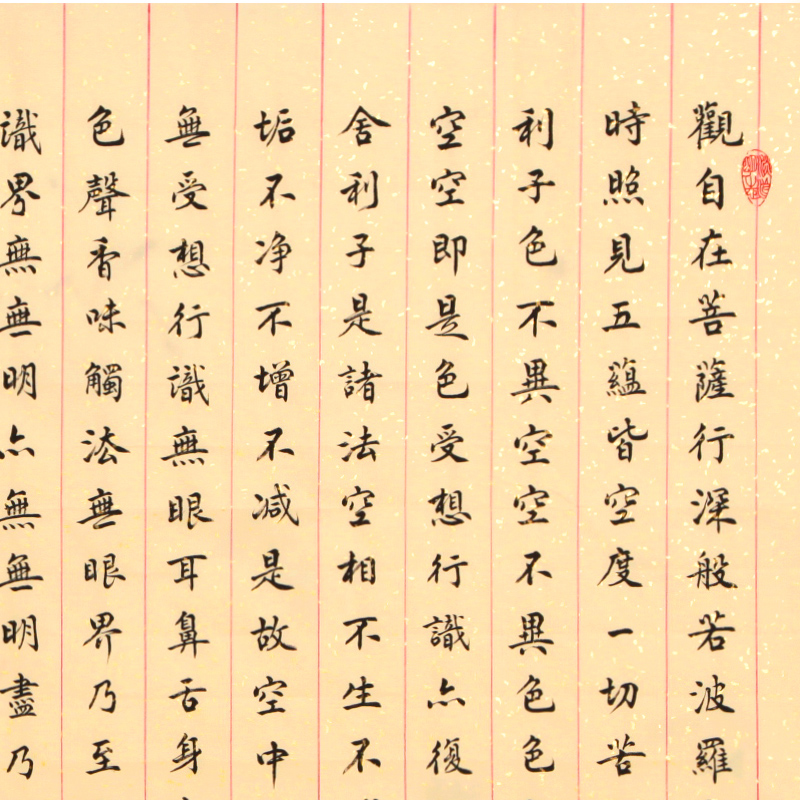 觀自在菩薩行深般若波羅
時照見五蘊皆空度一切苦
利子色不異空空不異色色
空空即是色受想行識亦復
舍利子是諸法空相不生不
垢不净不增不减是故空中
無受想行識無眼耳鼻舌身
色聲香味觸法無眼界乃至
識界無無明亦無無明盡乃